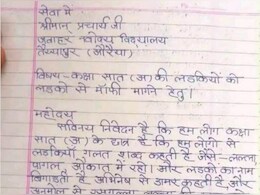 सेवा में
श्रीमान प्रचार्य जी
जवाहर नवोदय विद्यालय
तैय्यापुर (औरैया)
विषय- कक्षा सात (अ) की लडकियों को
लडकों से माँफी मांगने हेतु।
महोदय
सविनय निवेदन है कि हम लोग कक्षा
सात (अ) के छात्र है कि हम लोगो से
लडकियाँ गलत शब्द कहती है जैसे- लल्ला,
पागल, औकात में रहो। और लडको का नाम
बिगाडती है अभिषेक से डामर कहती है और
अनमोल से रसगुल्ला